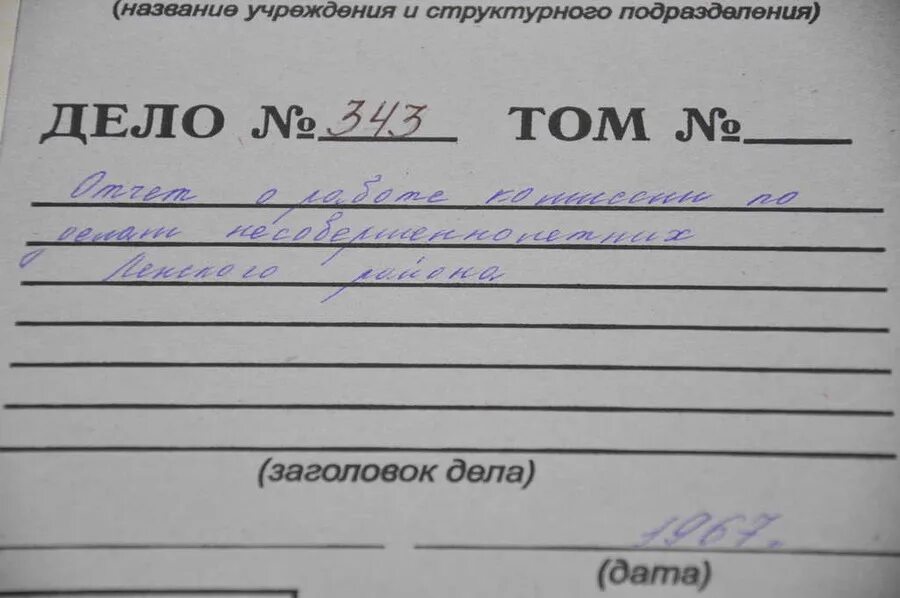 (название учреждения и структурного подразделения)
ДЕЛО № 343 ТОМ №
Отчет о работе комиссии по
делам несовершеннолетних
Ленского района
(заголовок дела)
1967г.
(дата)